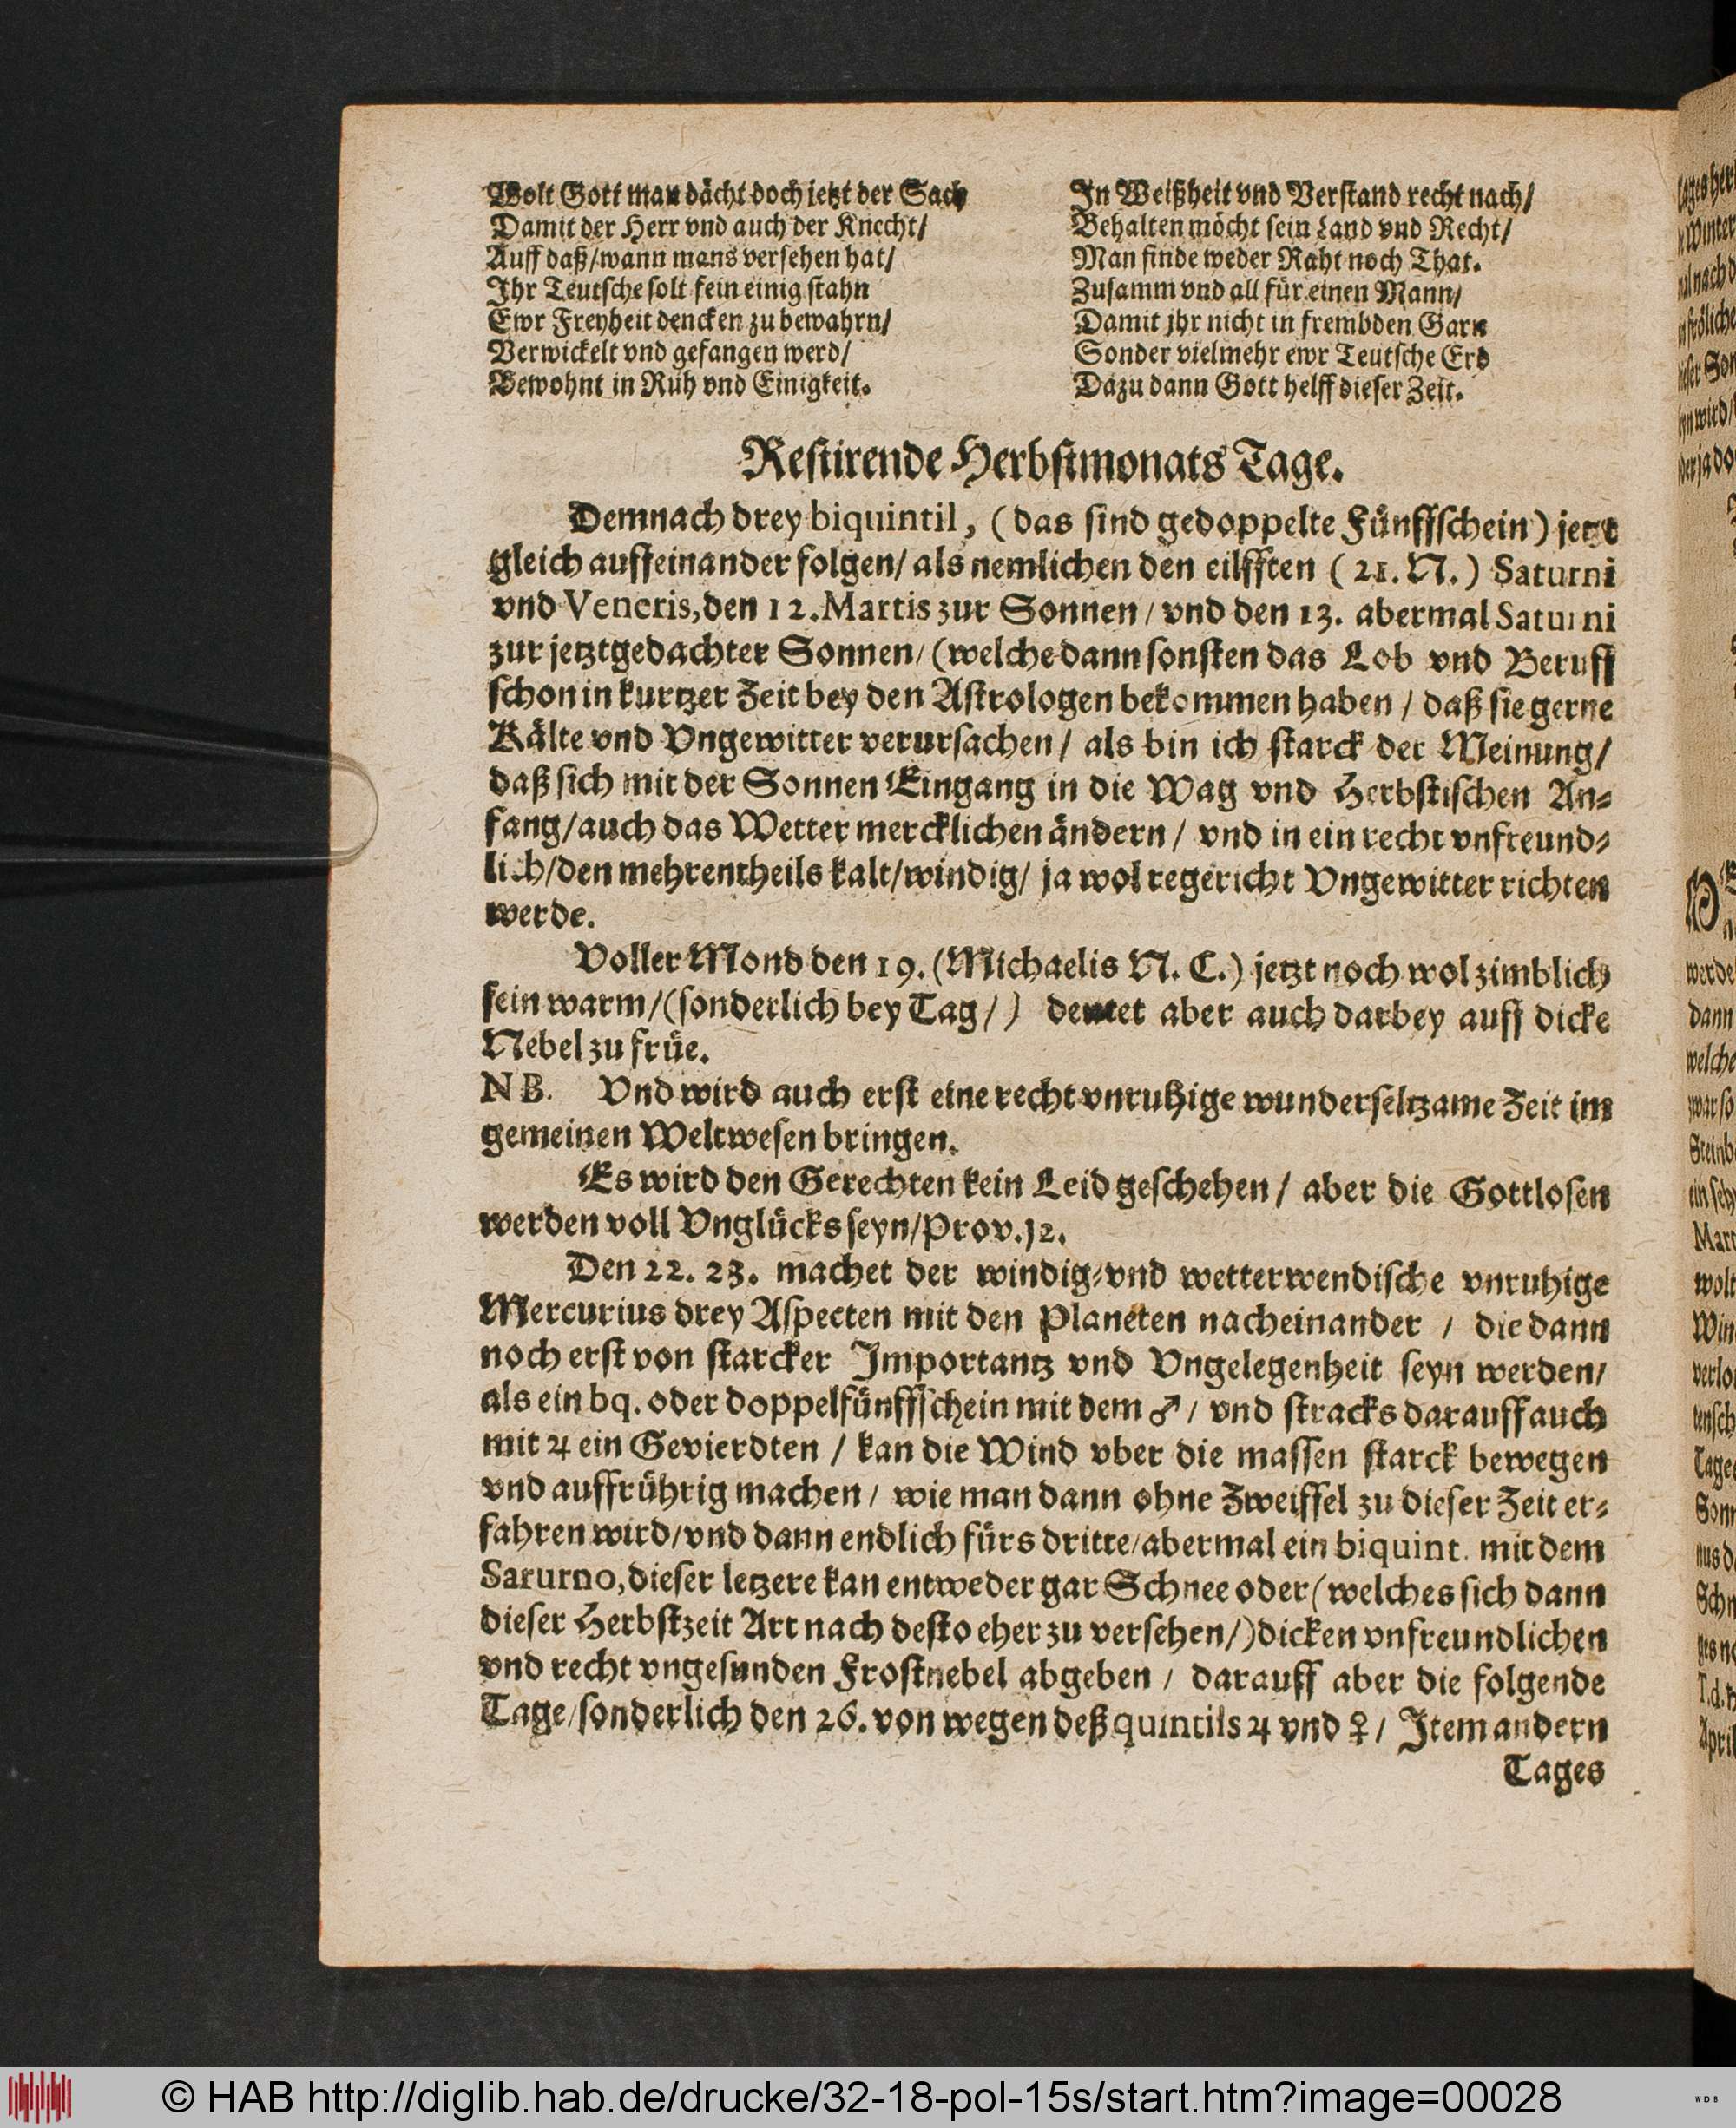 Wolt Gott man dächt doch jetzt der Sach
In Weißheit vnd Verstand recht nach/
Damit der Herr vnd auch der Knecht/
Behalten möcht sein Land vnd Recht/
Auff daß/wann mans versehen hat/
Man finde weder Raht noch That.
Ihr Teutsche solt fein einig stahn
Zusamm vnd all für einen Mann/
Ewr Freyheit dencken zu bewahrn/
Damit jhr nicht in frembden Garn
Verwickelt vnd gefangen werd/
Sonder vielmehr ewr Teutsche Erd
Bewohnt in Rüh vnd Einigkeit.
Dazu dann Gott helff dieser Zeit.
Restirende Herbstmonats Tage.
Demnach drey biquintil, (das sind gedoppelte Fünffschein) jetzt
gleich auffeinander folgen/ als nemlichen den eilfften (21. N.) Saturni
vnd Veneris, den 12. Martis zur Sonnen/ vnd den 13. abermal Saturni
zur jetztgedachter Sonnen/ (welche dann sonsten das Lob vnd Beruff
schon in kurtzer Zeit bey den Astrologen bekommen haben/ daß sie gerne
Kälte vnd Vngewitter verursachen/ als bin ich starck der Meinung/
daß sich mit der Sonnen Eingang in die Wag vnd Herbstischen An⸗
fang/auch das Wetter mercklichen ändern/ vnd in ein recht vnfreund⸗
lich/den mehrentheils kalt/windig/ ja wol regericht Vngewitter richten
werde.
Voller Mond den 19. (Michaelis N. C.) jetzt noch wol zimblich
fein warm/(sonderlich bey Tag/) deutet aber auch darbey auff dicke
Nebel zu früe.
NB. Vnd wird auch erst eine recht vnruhige wunderseltzame Zeit im
gemeinen Weltwesen bringen.
Es wird den Gerechten kein Leid geschehen/ aber die Gottlosen
werden voll Vnglücks seyn/Prov.12.
Den 22. 23. machet der windig⸗vnd wetterwendische vnruhige
Mercurius drey Aspecten mit den Planeten nacheinander/ die dann
noch erst von starcker Importantz vnd Vngelegenheit seyn werden/
als ein bq. oder doppelfünffschein mit dem ♂/ vnd stracks darauff auch
mit ♃ ein Gevierdten/ kan die Wind vber die massen starck bewegen
vnd auffrührig machen/ wie man dann ohne Zweiffel zu dieser Zeit er⸗
fahren wird/vnd dann endlich fürs dritte/abermal ein biquint. mit dem
Saturno, dieser letzere kan entweder gar Schnee oder (welches sich dann
dieser Herbstzeit Art nach desto eher zu versehen/)dicken vnfreundlichen
vnd recht vngesunden Frostnebel abgeben/ darauff aber die folgende
Tage/sonderlich den 26. von wegen deß quintils ♃ vnd ♀/ Item andern
Tages
© HAB http://diglib.hab.de/drucke/32-18-pol-15s/start.htm?image=00028